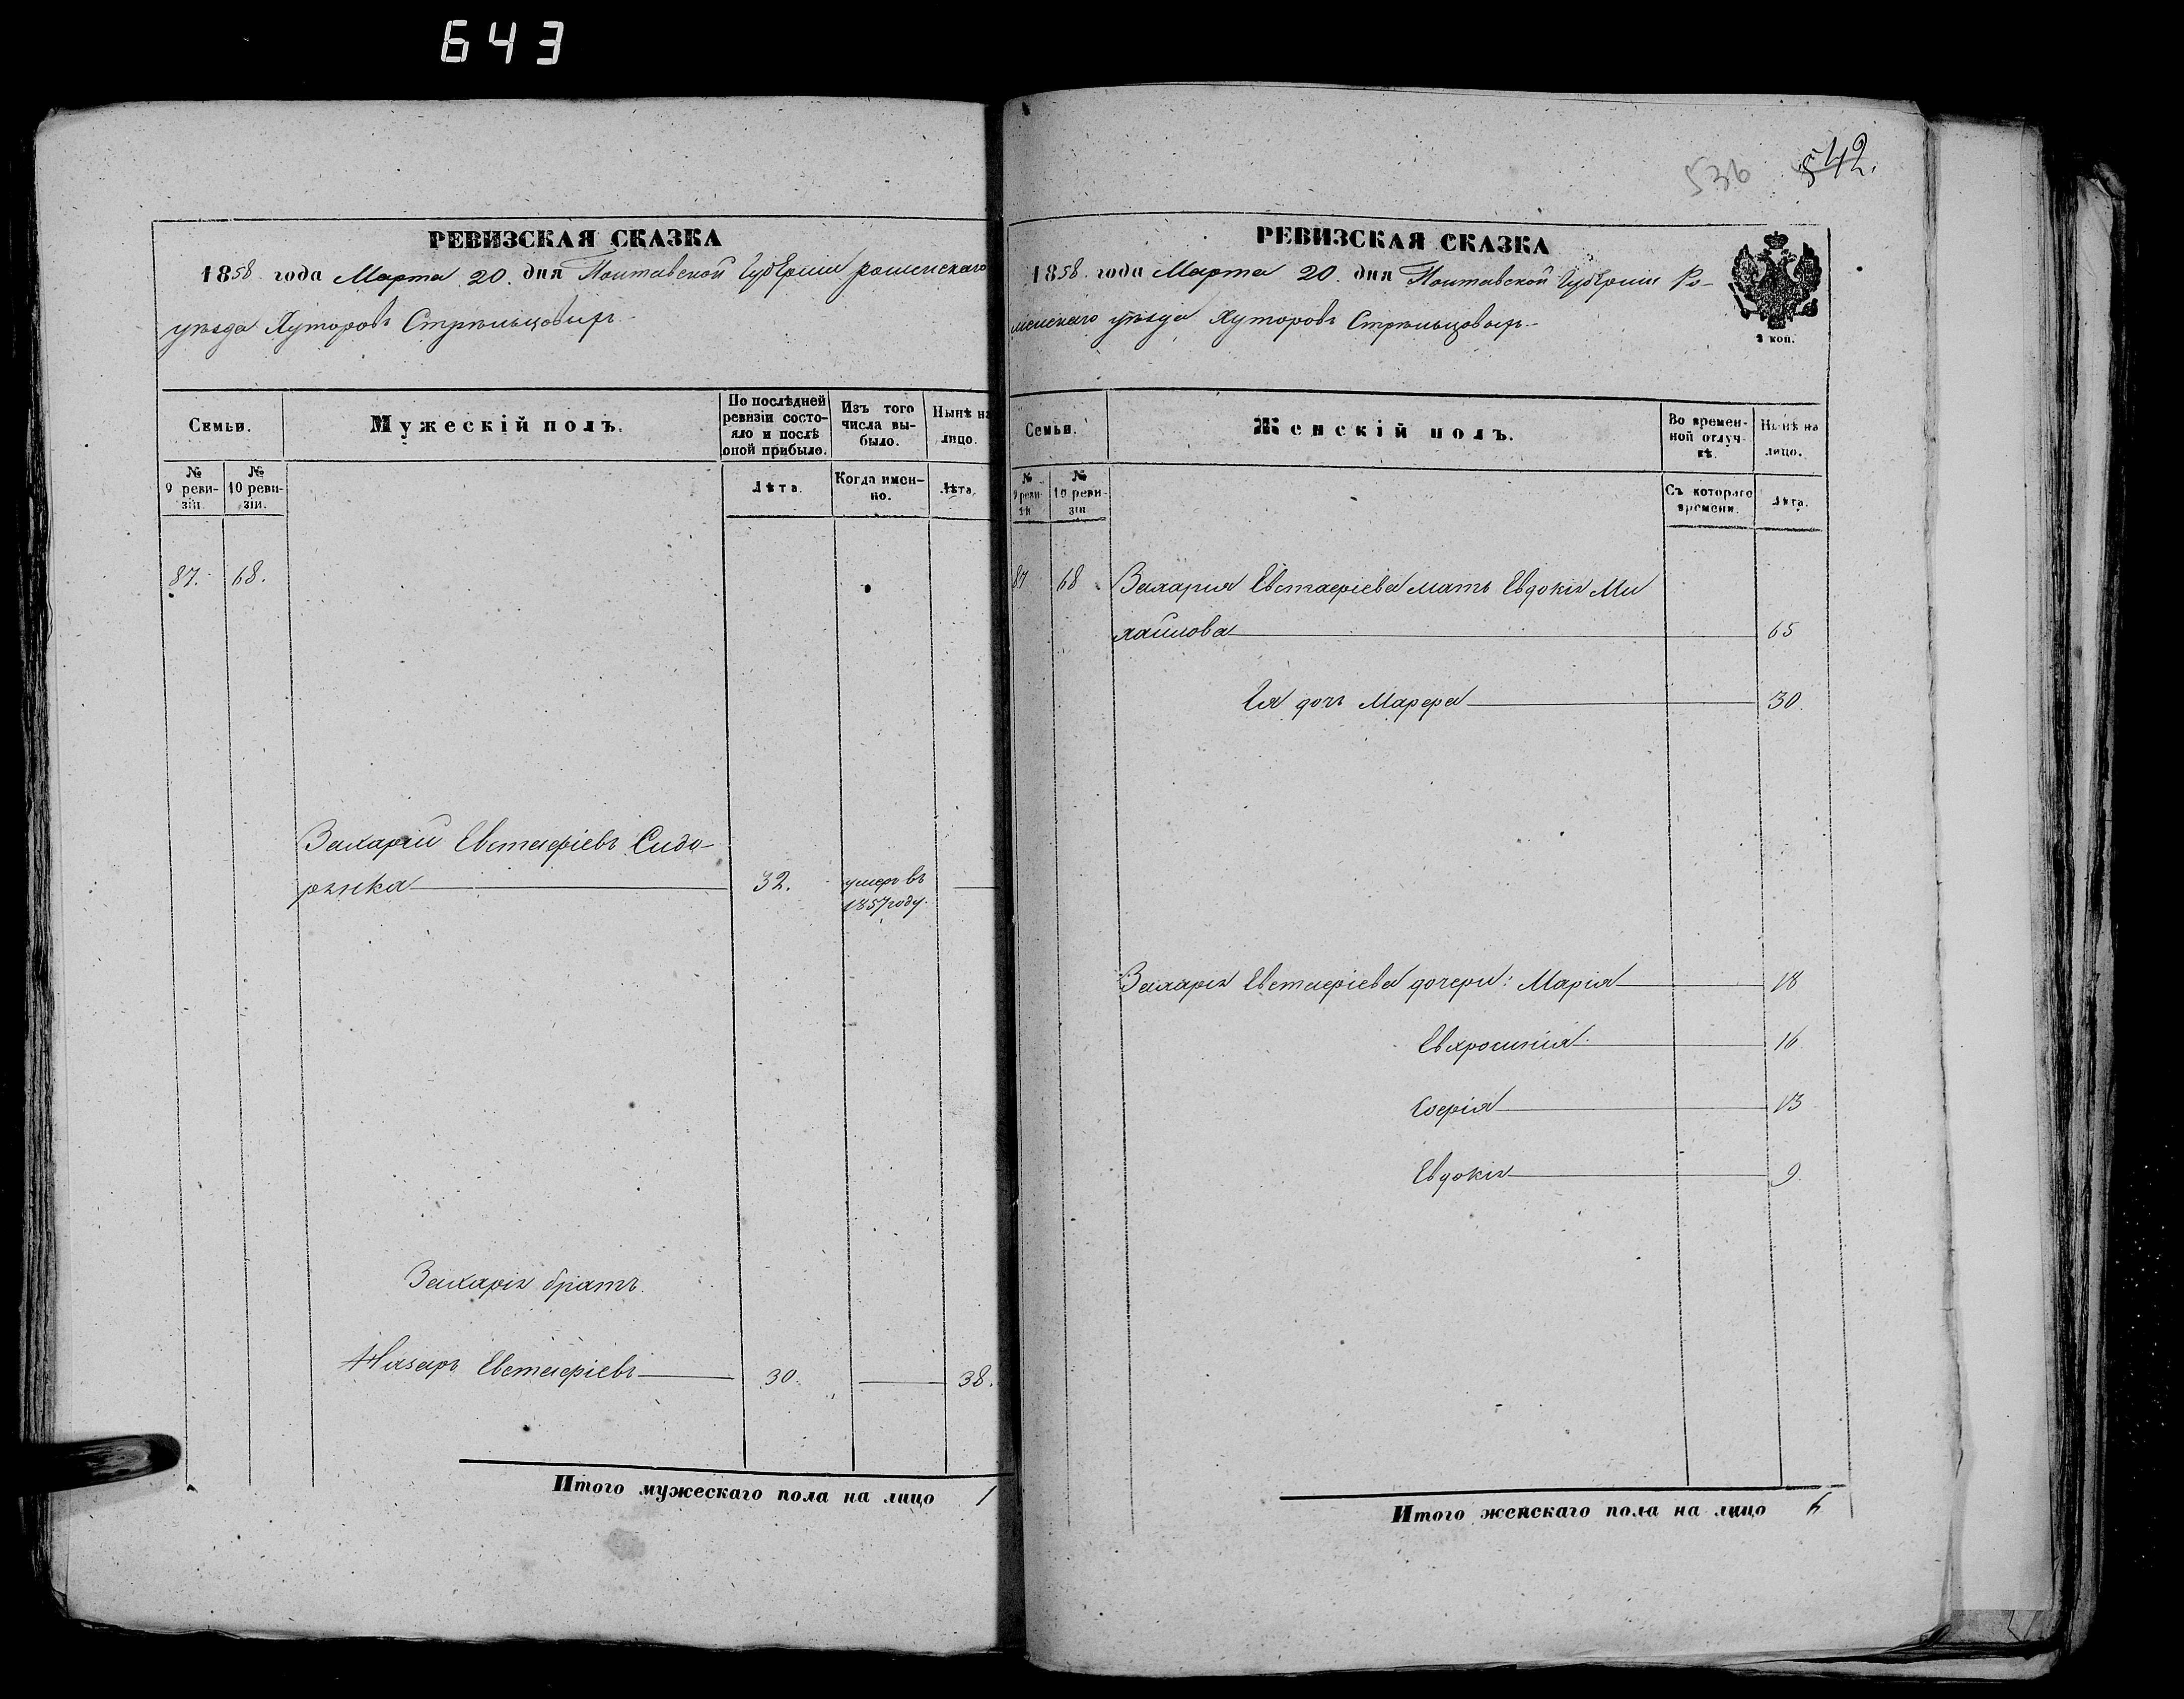 643
РЕВИЗСКАЯ СКАЗКА
1858 года Марта 20. дня Полтавской Губерніи роменскаго
уѣзда Хуторовъ Стрѣльцовыхъ
Семьи.
Мужескій полъ.
По послѣдней ревизіи состояло и послѣ оной прибыло.
Изъ того числа выбыло.
Нынѣ на лицо.
№ 9 ревизіи.
№ 10 ревизіи.
Лѣта.
Когда именно.
Лѣта.
87. 68.
Захарій Евстафіевъ Сидо-
рѣнка 32. умеръ въ
1857 году.
Захарія братъ.
Назаръ Евстафіевъ 30. 38.
Итого мужескаго пола на лицо 1
536 542.
РЕВИЗСКАЯ СКАЗКА
1858 года Марта 20. дня Полтавской Губерніи Ро-
менскаго уѣзда Хуторовъ Стрѣльцовыхъ
2 коп.
Семьи.
Женскій полъ.
Во временной отлучкѣ.
Нынѣ на лицо.
№ 9 ревизіи
№ 10 ревизіи
Съ котораго времени.
Лѣта.
87 68 Захарія Евстафіева мать Евдокія Ми
хайлова 65
Ея дочь Марфа 30.
Захарія Евстафіева дочери: Марія 18
Евхросинія 16
Софія 13
Евдокія 9.
Итого женскаго пола на лицо 6